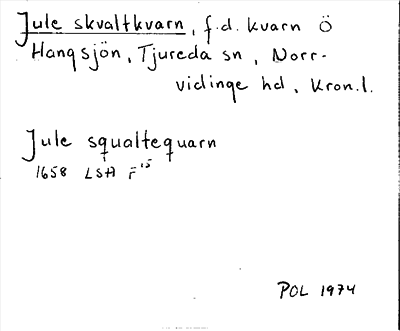 Jule skvaltkvarn, f.d. kvarn Ö
Hangsjön, Tjureda sn, Norr-
vidinge hd, Kron.l.
Jule squaltequarn
1658 LSA F¹⁵
POL 1974